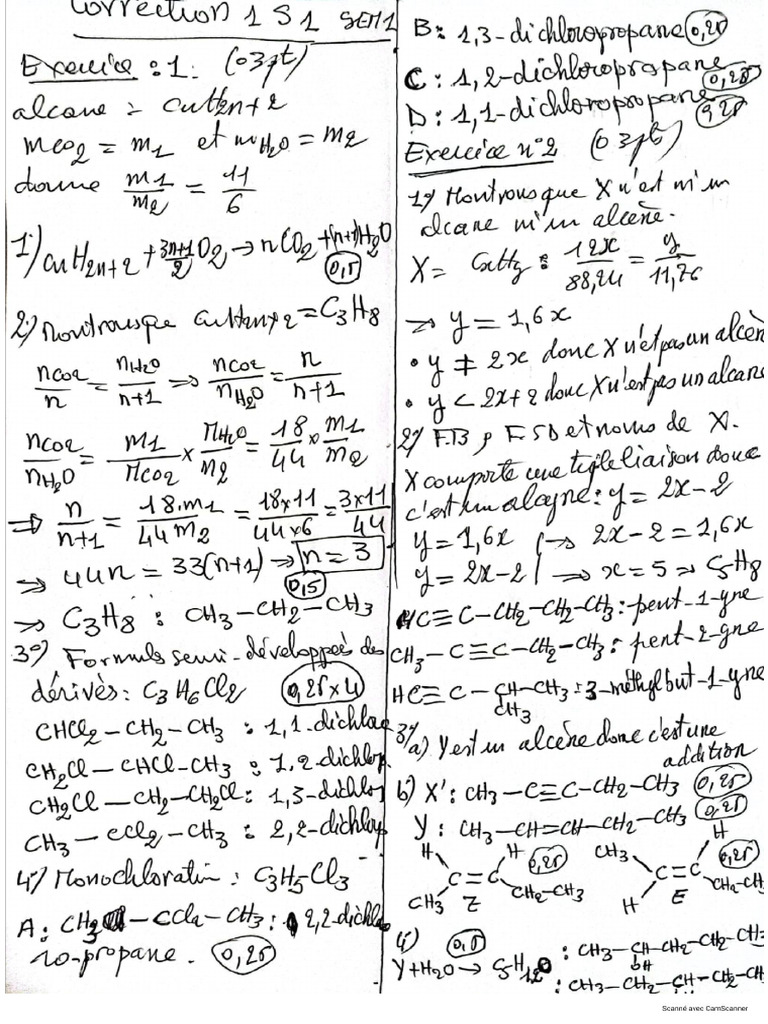 Correction 1 S1 SEM1
Exercice : 1. (03pt)
alcane = CnH2n+2
mCO2 = m1 et mH2O = m2
donne m1/m2 = 11/6
1°) CnH2n+2 + (3n+1)/2 O2 → nCO2 + (n+1)H2O
0,5
2°) Montrons que CnH2n+2 = C3H8
nCO2/n = nH2O/(n+1) ⇒ nCO2/nH2O = n/(n+1)
nCO2/nH2O = m1/MCO2 × MH2O/m2 = 18/44 × m1/m2
⇒ n/(n+1) = 18.m1/44m2 = 18×11/44×6 = 3×11/44
→ 44n = 33(n+1) → n = 3
0,5
→ C3H8 : CH3–CH2–CH3
3°) Formules semi-développées des
dérivés: C3H6Cl2 0,25×4
CHCl2–CH2–CH3 : 1,1-dichlo
CH2Cl–CHCl–CH3 : 1,2-dichlop
CH2Cl–CH2–CH2Cl: 1,3-dichlo
CH3–CCl2–CH3 : 2,2-dichlop
4°) Monochloration : C3H5Cl3
A: CH3–CCl2–CH3: 2,2-dichlo
ro-propane. 0,25
B: 1,3-dichloropropane 0,25
C: 1,2-dichloropropane 0,25
D: 1,1-dichloropropane 0,25
Exercice n°2 (03pt)
1°) Montrons que X n'est ni un
alcane ni un alcène.
X = CxHy : 12x/88,24 = y/11,76
→ y = 1,6x
• y ≠ 2x donc X n'est pas un alcèn
• y < 2x+2 donc X n'est pas un alcane
2°) F.B, F.SD et noms de X.
X comporte une triple liaison donc
c'est un alcyne: y = 2x-2
y = 1,6x → 2x-2 = 1,6x
y = 2x-2 → x = 5 ⇒ C5H8
HC≡C–CH2–CH2–CH3: pent-1-yne
CH3–C≡C–CH2–CH3: pent-2-yne
HC≡C–CH–CH3: 3-méthylbut-1-yne
CH3
3°/a) Y est un alcène donc c'est une
addition
b) X': CH3–C≡C–CH2–CH3 0,25
Y: CH3–CH=CH–CH2–CH3 0,25
H H 0,25 CH3 H 0,25
C=C C=C
CH3 Z CH2–CH3 H E CH2–CH3
4°) 0,5
Y+H2O → C5H12O : CH3–CH–CH2–CH2–CH3
OH
: CH3–CH2–CH–CH2–CH
Scanné avec CamScanner